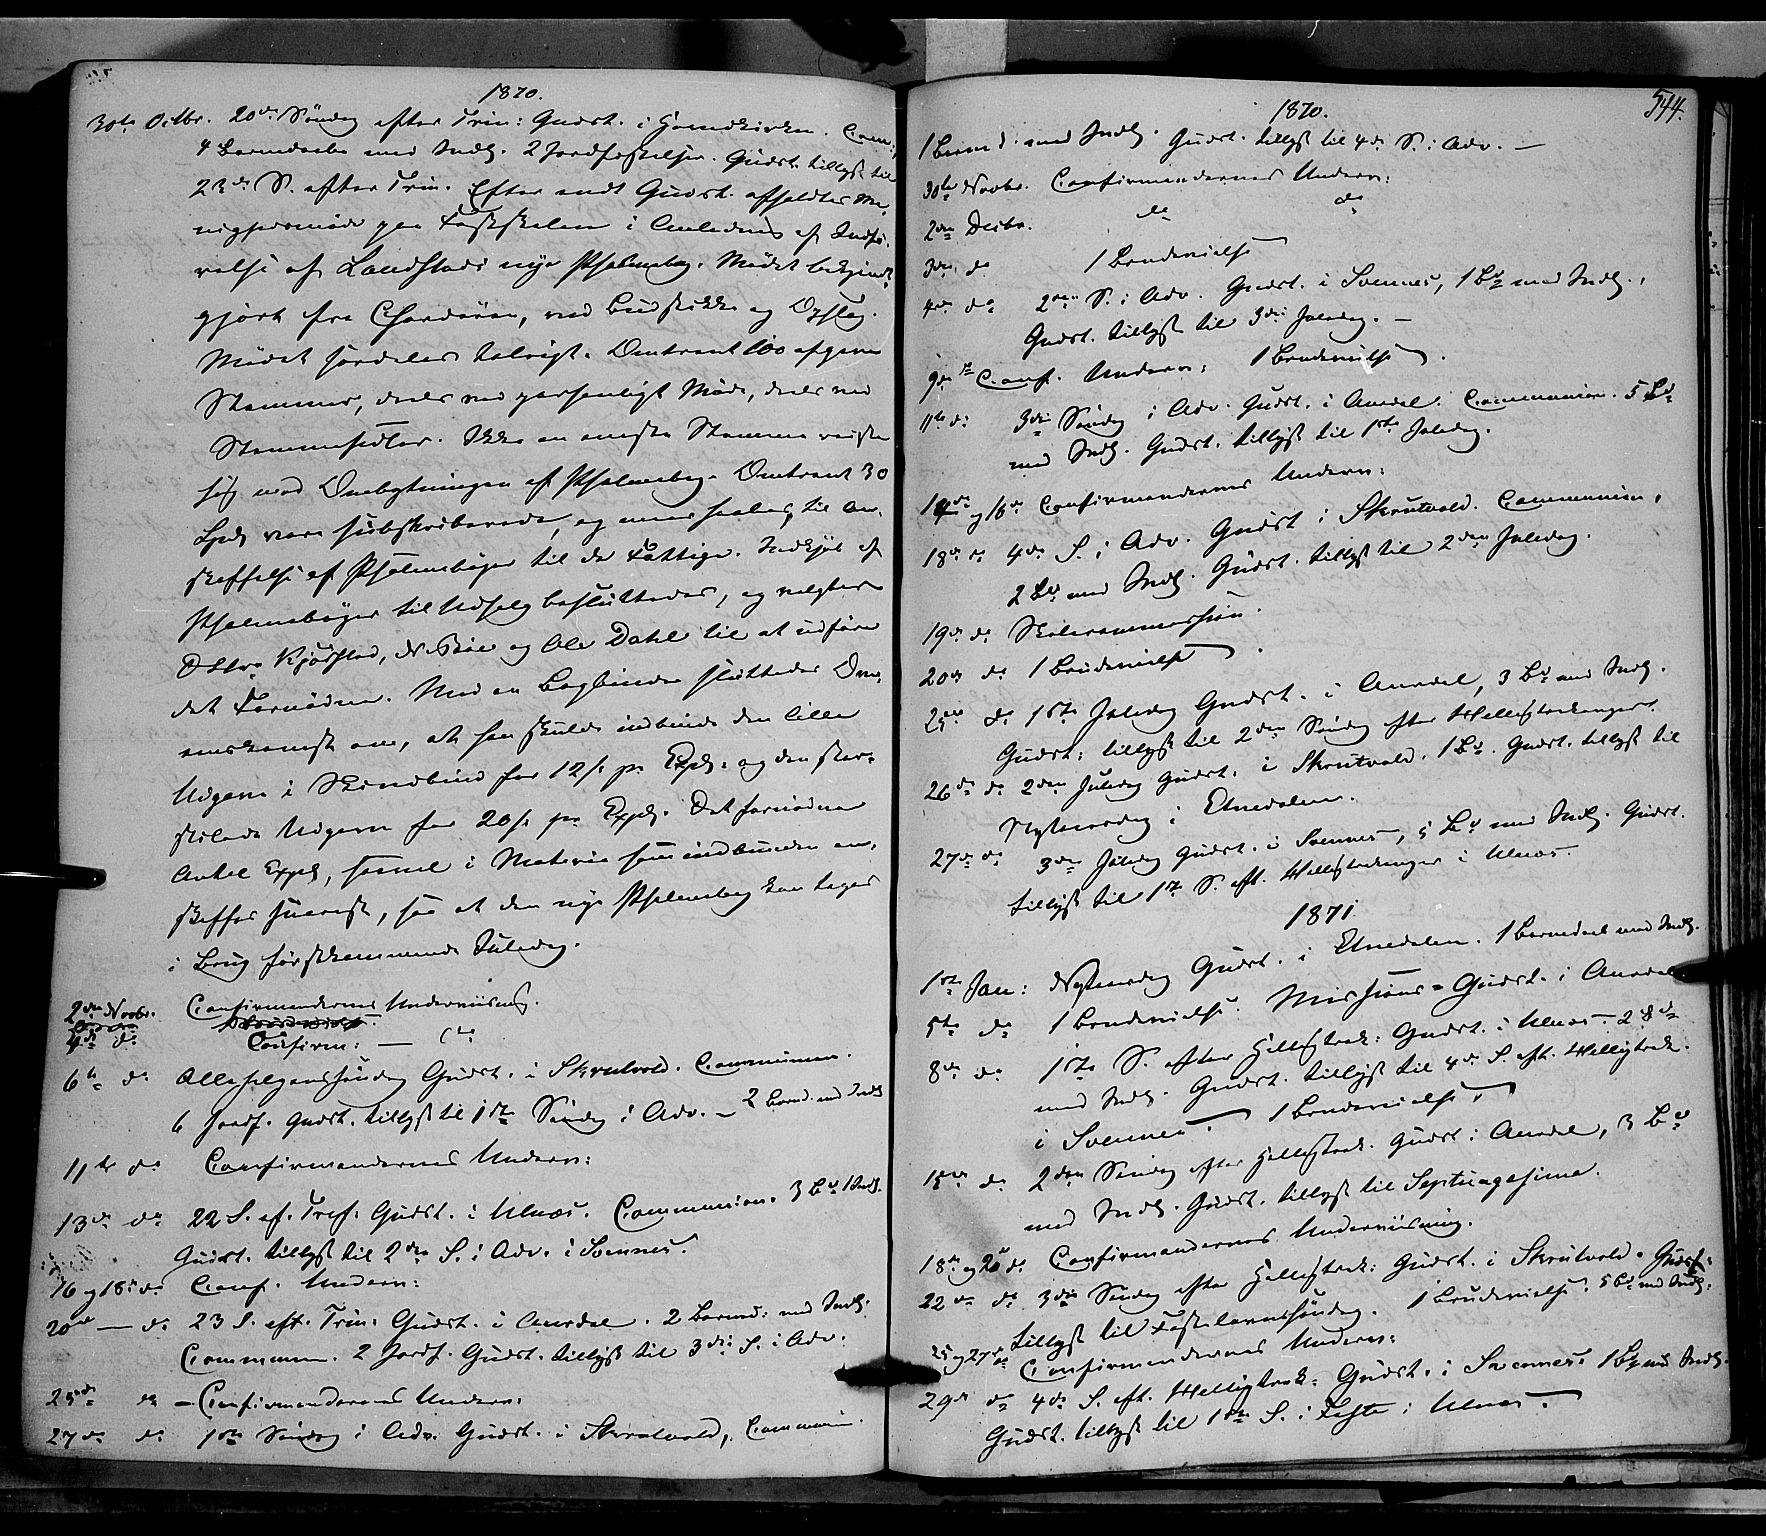 1870.
30te Octbr. 20de Søndag efter Trin: Gudst. i Hovedkirken. Com:,
4 Barnedaab med Indl. 2 Jordfæstelser. Gudst. tillyst til
23de S. efter Trin. Efter endt Gudst. afholdtes Me-
nighedsmøde paa Fastskolen i Anledning af Indfø-
relse af Landstads nye Psalmebog. Mødet bekjendt-
gjort fra Chordøren, ved Budstikke og Opslag.
Mødet særdeles talrigt. Omtrent 100 afgave
Stemmer, deels ved personligt Møde, deels ved
Stemmesedler. Ikke en eneste Stemme reiste
sig mod Ombytningen af Psalmebog. Omtrent 30
Spd. vare subskriberede, og indsamles, til An-
skaffelse af Psalmebøger til de Fattige. Indkjøb af
Psalmebøger til Udsalg besluttedes, og valgtes
Kjørstad, og Ole Dahl til at udføre
det Fornødne. Med en Bogbinder sluttedes Over-
enskomst om, at han skulde indbinde den lille
Udgave i Skindbind for 12 s. pr. Expl. og den stør-
stilede Udgave for 20 s. pr. Expl. Det fornødne
Antal Expl., saavel i Materie som indbunden an-
skaffes snarest, saa at den nye Psalmebog kan tages
i Brug førstkommende Juledag.
2den Novbr. Confirmandernes Underviisning.
4de do Confirm: — do
6te do Allehelgenssøndag Gudst. i Skrutvold. Communion.
6 Jordf. Gudst. tillyst til 1ste Søndag i Adv. — 2 Barned. med Indl.
11te do Confirmandernes Underv:
13de do 22 S. ef. Tref. Gudst. i Ulnæs. Communion. 3 Bd. 1 Indl.
Gudst. tillyst til 2den S. i Adv. i Svennes.
16 og 18 do Conf. Underv:
20de — do 23 S. eft. Trin: Gudst. i Aurdal. 2 Barned: med Indl.
Communion. 2 Jordf. Gudst. tillyst til 3die S. i Adv.
25de do — Confirmandernes Underv:
27de do 1ste Søndag i Adv. Gudst. i Skrutvold, Communion.
1870.
544.
1 Barned: med Indl. Gudst. tillyst til 4de S. i Adv. —
30te Novbr. Confirmandernes Underv:
2den Decbr. do do
3die do 1 Brudevielse
4de do 2den S. i Adv. Gudst. i Svennes, 1 Bd. med Indl.,
Gudst. tillyst til 3die Juledag. —
9de do Conf. Underv: 1 Brudevielse.
11te do 3die Søndag i Adv. Gudst. i Aurdal. Communion. 5 Bd.
med Indl. Gudst. tillyst til 1ste Juledag.
14de og 16de Confirmandernes Underv:
18de do 4de S. i Adv. Gudst i Skrutvold. Communion,
2 Bd. med Indl. Gudst. tillyst til 2den Juledag.
19de do Skolecommission.
20de do 1 Brudevielse.
25de do 1ste Juledag Gudst. i Aurdal, 3 Bd. med Indl.
Gudst: tillyst til 2den Søndag efter Hellig3konger.
26de do 2den Juledag Gudst. i Skrutvold. 1 Bd. Gudst. tillyst til
Nytaarsdag i Etnedalen.
27de do 3die Juledag Gudst. i Svennes, 5 Bd. med Indl. Gudst.
tillyst til 1ste S. eft. Hellig3konger i Ulnæs.
1871
1ste Jan: Nytaarsdag Gudst. i Etnedalen. 1 Barnedaab med Indl.
5te do 1 Brudevielse. Missions-Gudst. i Aurdal
8de do 1ste S. efter Hellig3kok: Gudst. i Ulnæs. 2 Bd
med Indl. Gudst. tillyst til 4de S. eft. Hellig3k.
i Svennes. 1 Brudevielse.
15de do 2den Søndag efter Hellig3k. Gudst i Aurdal, 3 Bd
med Indl. Gudst. tillyst til Septuagesima.
18de og 20 do Confirmandernes Underviisning.
22de do 3die Søndag efter Hellig3k: Gudst. i Skrutvold. Gudst:
tillyst til Fastelavnssøndag. 1 Brudevielse. 5 Bd med Indl:
25 og 27de Confirmandernes Underv:
29de do 4de S. eft. Hellig3k: Gudst. i Svennes. 1 Bd. med Indl.
Gudst. tillyst til 1ste S. i Faste i Ulnæs.